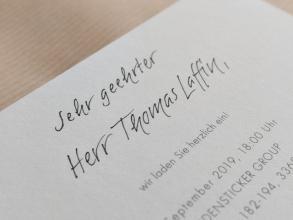 Sehr geehrter
Herr Thomas Laffin,
wir laden Sie herzlich ein!
September 2019, 18:00 Uhr
ENSTICKER GROUP
182-194, 336